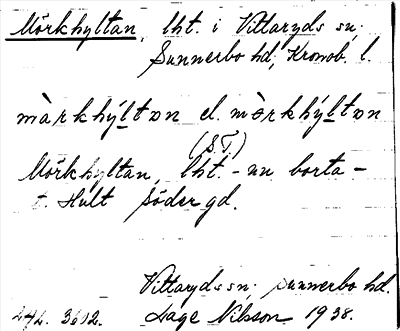 Mörkhyltan, lht. i Vittaryds sn;
Sunnerbo hd, Kronob. l.
màrkhy̆ltɒn el. mòrkhy̆ltɒn
(S.T.)
Mörkhyltan, lht. - nu borta -
t. Hult Södergd.
Vittaryds sn, Sunnerbo hd.
Aage Nilsson 1938.